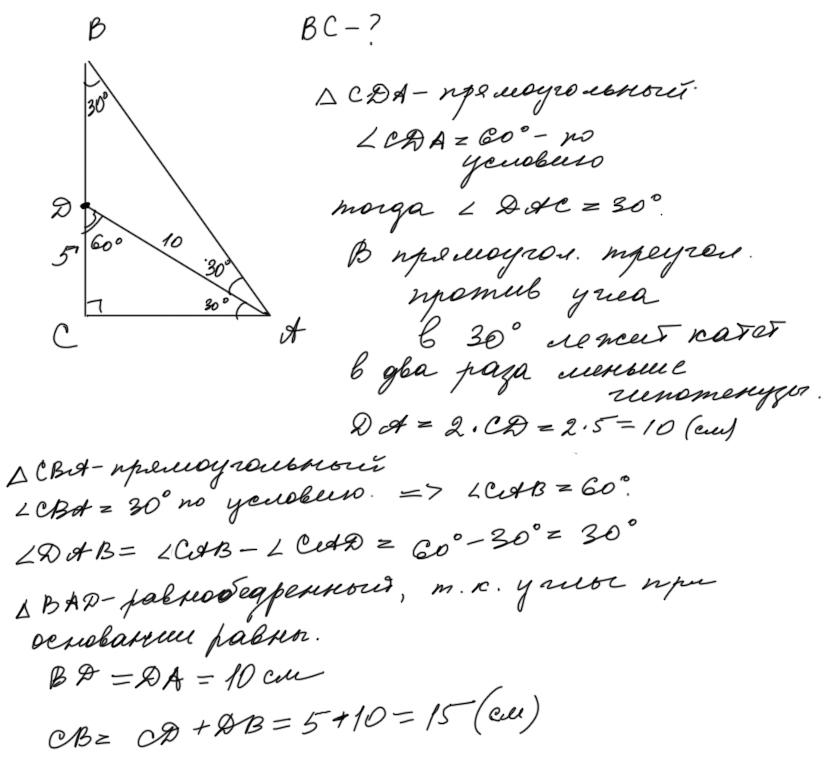 B
BC - ?
30°
△ CDA - прямоугольный.
∠CDA = 60° - по
условию
D
тогда ∠ DAC = 30°.
60°
10
5
30°
В прямоугол. треугол.
30°
против угла
C
A
в 30° лежит катет
в два раза меньше
гипотенузы.
DA = 2 · CD = 2·5 = 10 (см)
△ CBA - прямоугольный
∠CBA = 30° по условию. => ∠CAB = 60°.
∠DAB = ∠CAB - ∠CAD = 60° - 30° = 30°
△ BAD - равнобедренный, т.к. углы при
основании равны.
BD = DA = 10 см
CB = CD + DB = 5 + 10 = 15 (см)